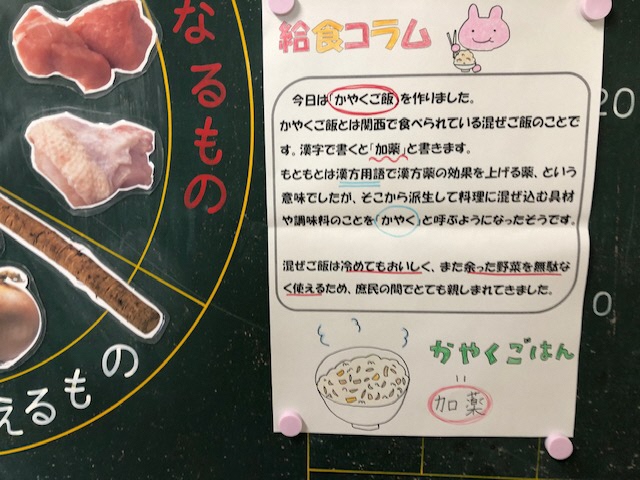 なるもの
えるもの
給食コラム
今日は「かやくご飯」を作りました。
かやくご飯とは関西で食べられている混ぜご飯のことで
す。漢字で書くと「加薬」と書きます。
もともとは漢方用語で漢方薬の効果を上げる薬、という
意味でしたが、そこから派生して料理に混ぜ込む具材
や調味料のことを「かやく」と呼ぶようになったそうです。
混ぜご飯は冷めてもおいしく、また余った野菜を無駄な
く使えるため、庶民の間でとても親しまれてきました。
かやくごはん
=
加薬
20
0